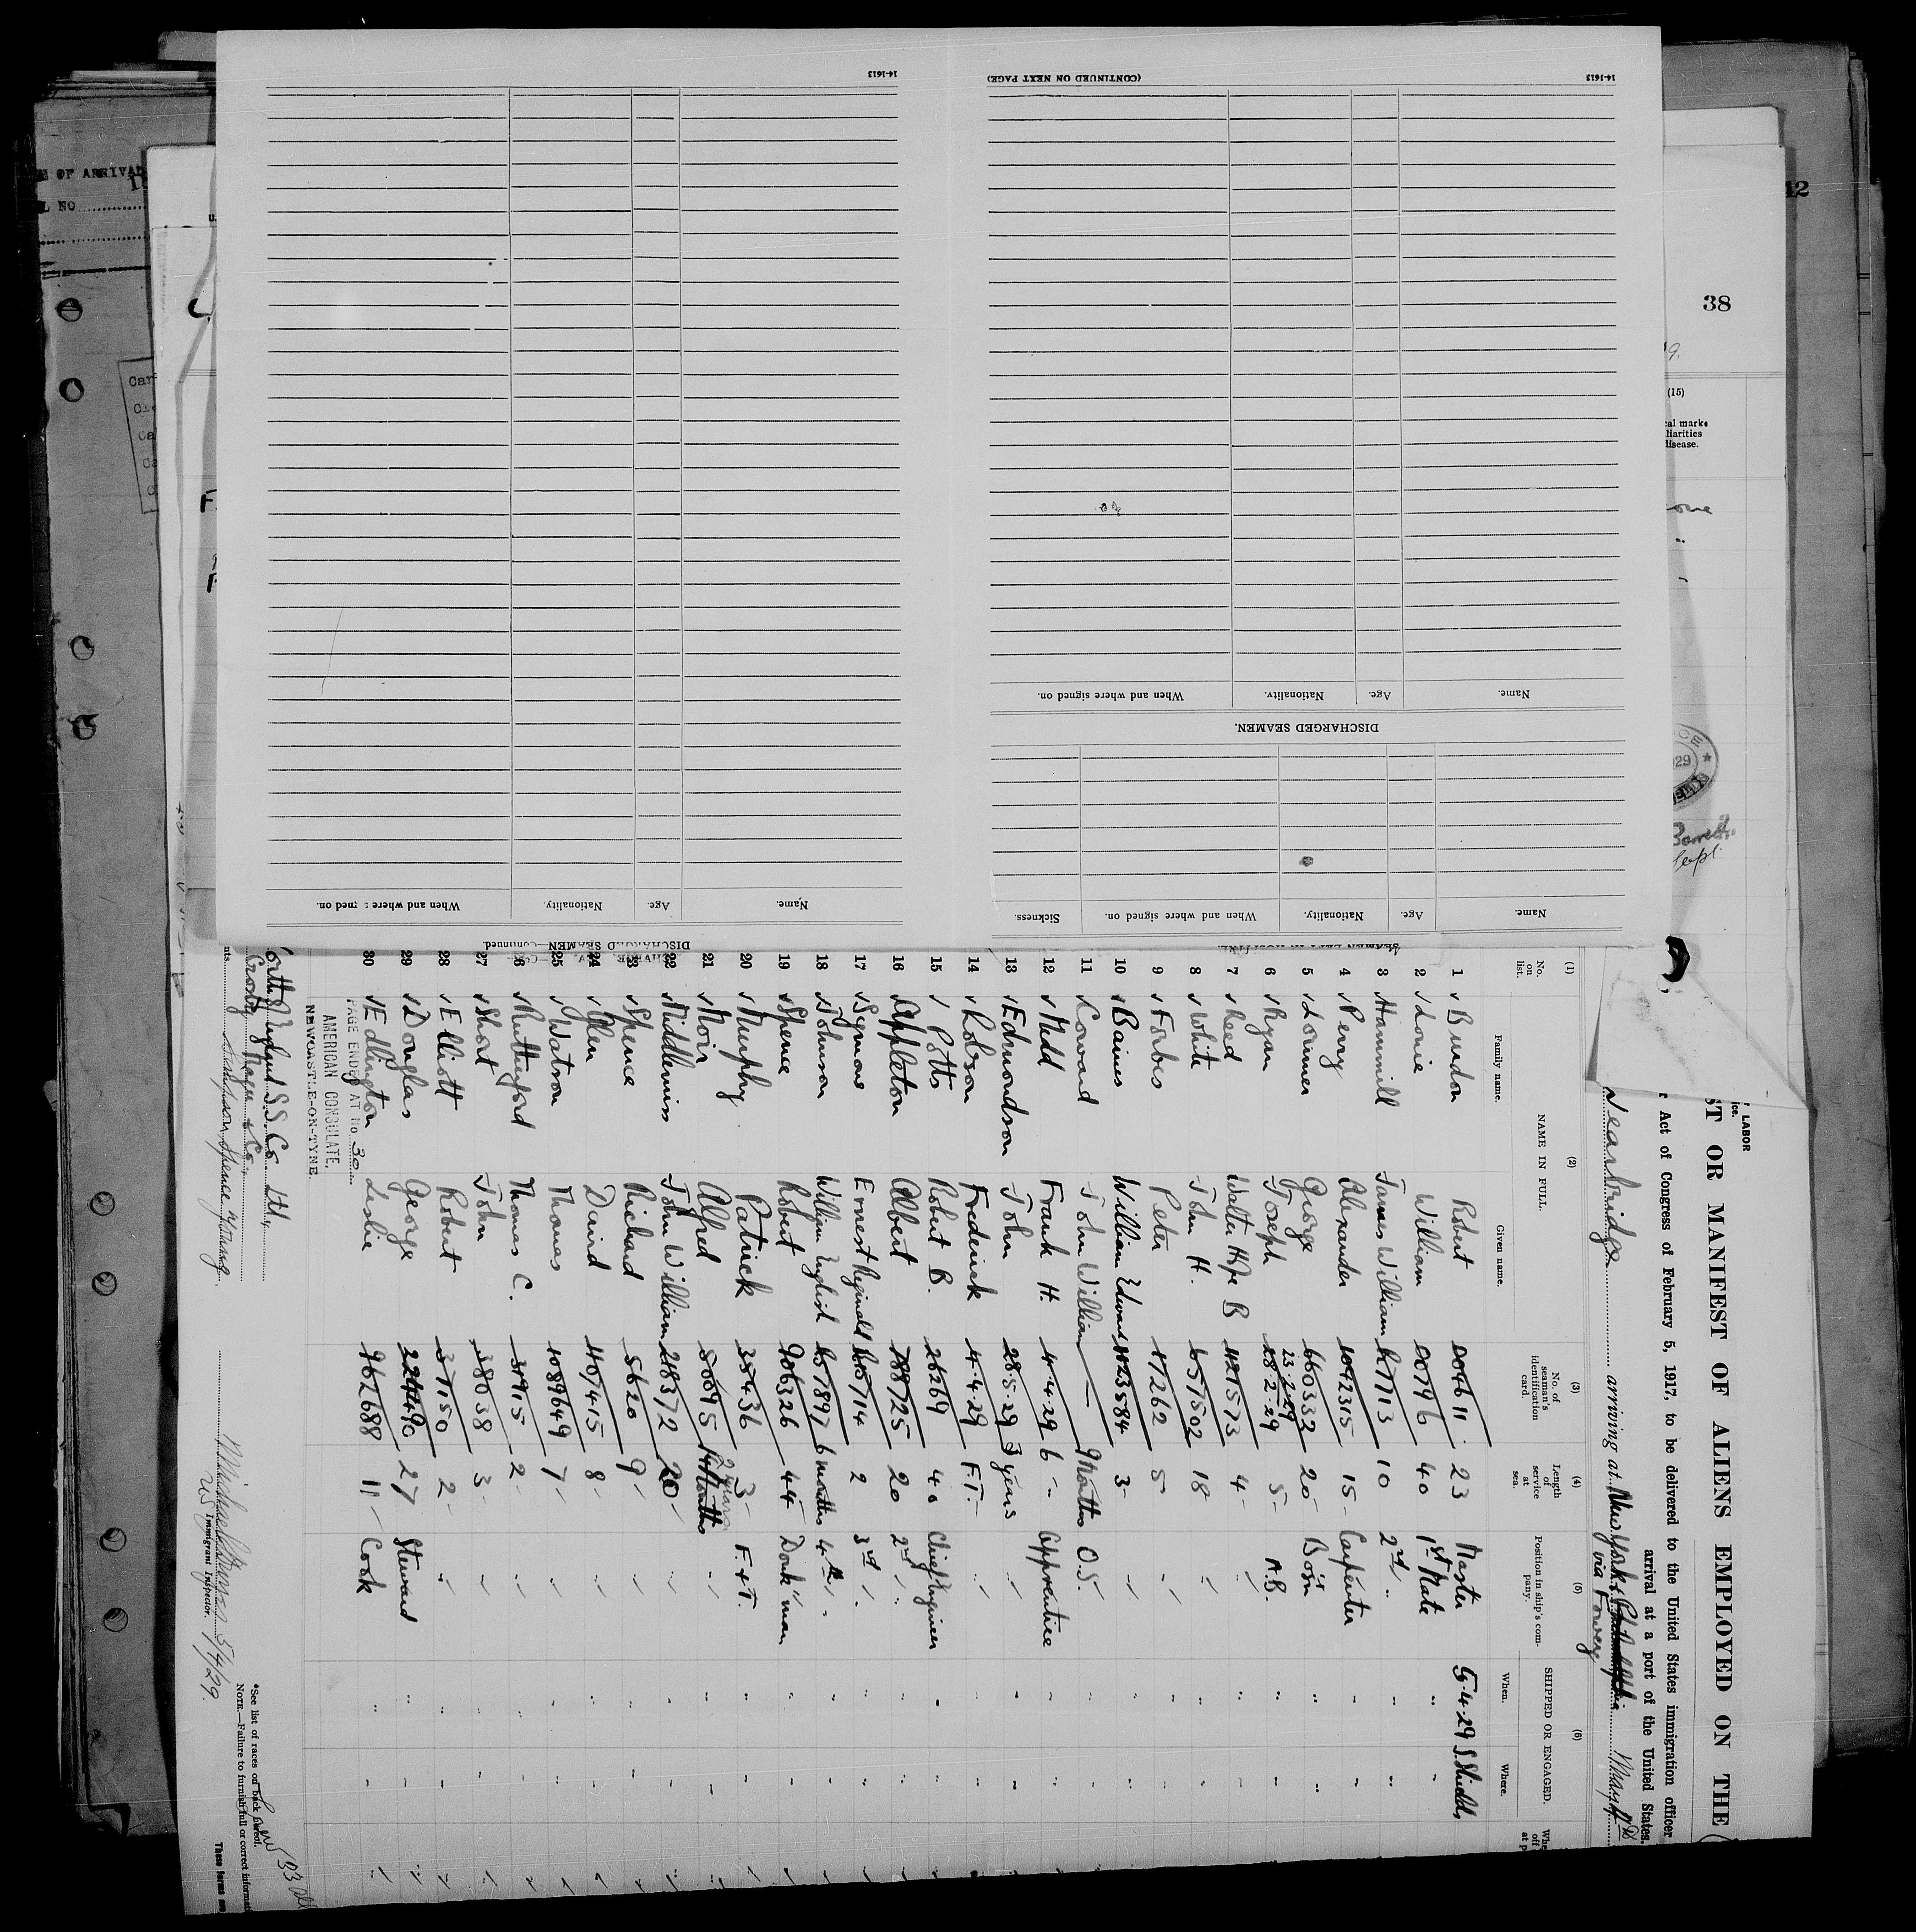 14-1613
(CONTINUED ON NEXT PAGE)
14-1613
Name.
Age.
Nationality.
When and where signed on.
DISCHARGED SEAMEN.
Name.
Age.
Nationality.
When and where signed on.
Sickness.
Name.
Age.
Nationality.
When and where signed on.
DISCHARGED SEAMEN—Continued.
OF ARRIVAL
NO
38
(15)
cal marks
liarities
disease.
LABOR
ST OR MANIFEST OF ALIENS EMPLOYED ON THE
Act of Congress of February 5, 1917, to be delivered to the United States immigration officer
arrival at a port of the United States.
arriving at New York
via Fowey
(1)
No. on list.
(2)
NAME IN FULL.
Family name.
Given name.
(3)
No. of seaman's identification card.
(4)
Length of service at sea.
(5)
Position in ship's company.
(6)
SHIPPED OR ENGAGED.
When.
Where.
1 Burdon Robert 004611 23 Master 5.4.29 S. Shields
2 Lowie William 00796 40 1st Mate
3 Hammill James William R7713 10 2nd "
4 Perry Alexander 1042315 15 Carpenter
5 Lorimer George 660332 20 Bosn
6 Ryan Joseph 13.2.29 28.2.29 5 A.B.
7 Reed Walter Hope B 421573 4
8 White John H. 657502 18
9 Forbes Peter 17262 5
10 Baines William Edward 1123584 3
11 Coward John William 9 Months O.S.
12 Mudd Frank H. 4.4.29 6 Apprentice
13 Edmondson John 28.5.29 3 years
14 Robson Frederick 4.4.29 F.T.
15 Potts Robert B. 26269 40 Chief Engineer
16 Appleton Albert 788725 20 2nd
17 Symons Ernest Reginald 2 3rd
18 Johnson William English 6 months 4th
19 Spence Robert 906326 44 Donk'man
20 Murphy Patrick 35436 3 F.&T.
21 Moir Alfred 50095 2 years
22 Middlemiss John William 218372 20
23 Spence Richard 5620 9
24 Glen David 407415 8
25 Watson Thomas 1089649 7
26 Rutherford Thomas C. 31915 2
27 Short John 38038 3
28 Elliott Robert 37150 2
29 Douglas George 224490 27 Steward
30 Edlington Leslie 962688 11 Cook
PAGE ENDED AT No 30
AMERICAN CONSULATE,
NEWCASTLE-ON-TYNE.
North of England S.S. Co. Ltd.
Crosby Magee & Co.
Simpson Spence & Young
5/4/29.
US Immigrant Inspector.
*See list of races on back hereof.
NOTE.—Failure to furnish full or correct informat
These forms are